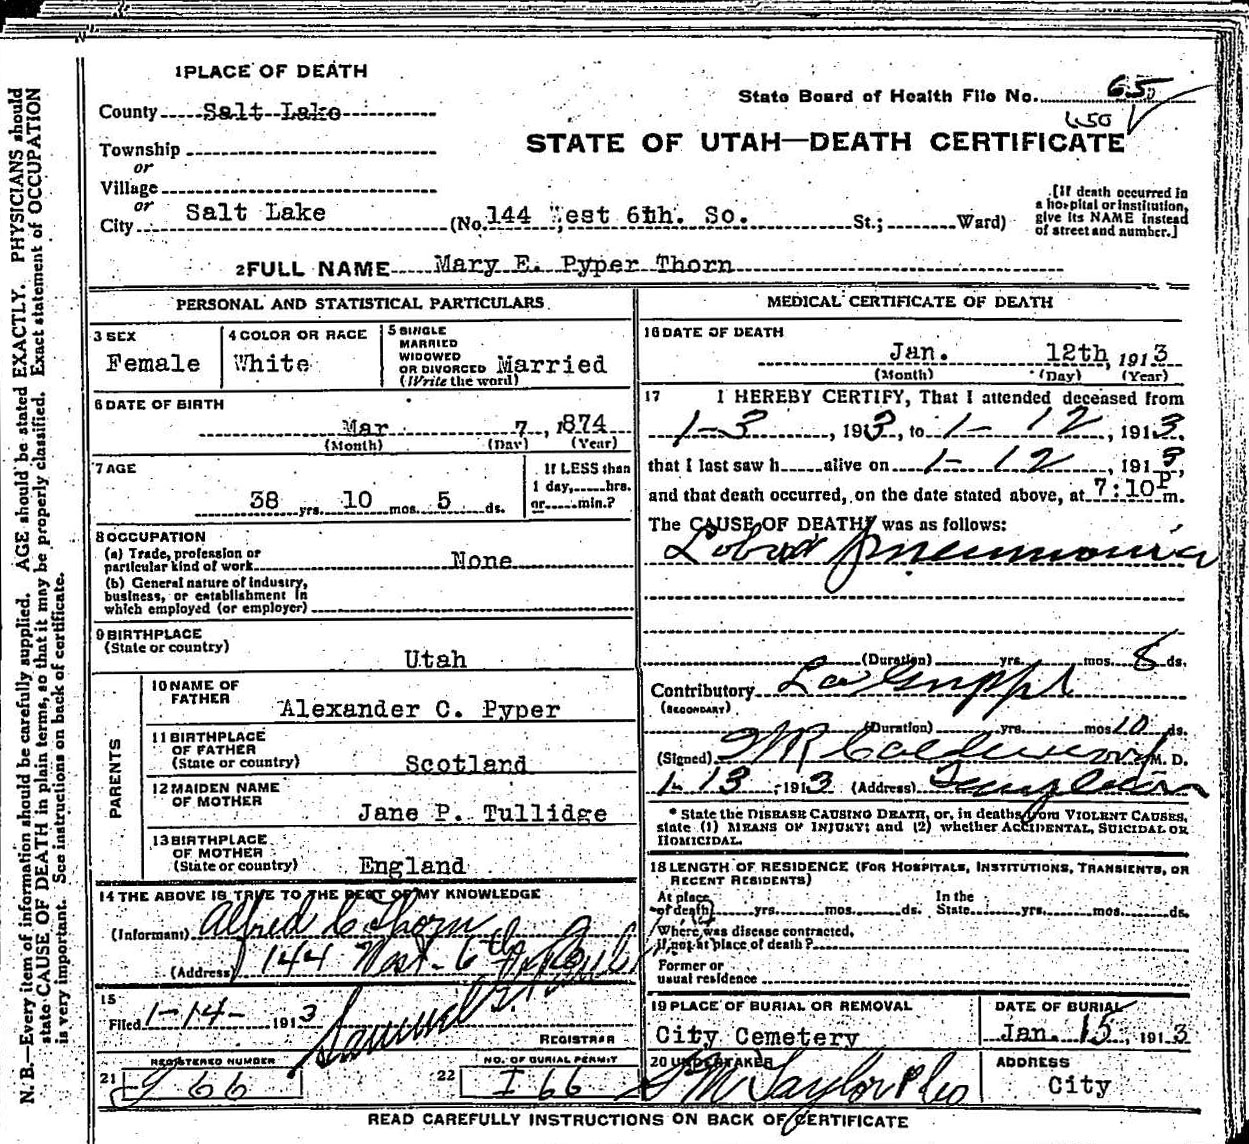 1 PLACE OF DEATH
County Salt Lake
State Board of Health File No. 65
650
Township
or
Village
or
City Salt Lake (No. 144 West 6th. So. St.; Ward)
STATE OF UTAH—DEATH CERTIFICATE
[If death occurred in
a hospital or institution,
give its NAME instead
of street and number.]
2 FULL NAME Mary E. Pyper Thorn
PERSONAL AND STATISTICAL PARTICULARS
3 SEX
Female
4 COLOR OR RACE
White
5 SINGLE
MARRIED
WIDOWED
OR DIVORCED Married
(Write the word)
6 DATE OF BIRTH
Mar 7, 1874
(Month) (Day) (Year)
7 AGE
38 yrs. 10 mos. 5 ds.
If LESS than
1 day, hrs.
or min.?
8 OCCUPATION
(a) Trade, profession or
particular kind of work None
(b) General nature of industry,
business, or establishment in
which employed (or employer)
9 BIRTHPLACE
(State or country)
Utah
PARENTS
10 NAME OF
FATHER
Alexander C. Pyper
11 BIRTHPLACE
OF FATHER
(State or country) Scotland
12 MAIDEN NAME
OF MOTHER
Jane P. Tullidge
13 BIRTHPLACE
OF MOTHER
(State or country) England
14 THE ABOVE IS TRUE TO THE BEST OF MY KNOWLEDGE
(Informant) Alfred C Thorn
(Address) 144 West 6th
15
Filed 1-14- 1913 Samuel G.
REGISTRAR
REGISTERED NUMBER
21 66
NO. OF BURIAL PERMIT
22 I 66
MEDICAL CERTIFICATE OF DEATH
16 DATE OF DEATH
Jan. 12th, 1913
(Month) (Day) (Year)
17 I HEREBY CERTIFY, That I attended deceased from
1-3, 1913, to 1-12, 1913,
that I last saw h alive on 1-12, 1913,
and that death occurred, on the date stated above, at 7:10 P m.
The CAUSE OF DEATH* was as follows:
Lobar Pneumonia
(Duration) yrs. mos. 8 ds.
Contributory La Grippe
(SECONDARY)
(Duration) yrs. mos 10 ds.
(Signed) M. D.
1-13, 1913 (Address) Templeton
* State the DISEASE CAUSING DEATH, or, in deaths from VIOLENT CAUSES,
state (1) MEANS OF INJURY; and (2) whether ACCIDENTAL, SUICIDAL OR
HOMICIDAL.
18 LENGTH OF RESIDENCE (FOR HOSPITALS, INSTITUTIONS, TRANSIENTS, OR
RECENT RESIDENTS)
At place
of death yrs. mos. ds.
In the
State yrs. mos. ds.
Where was disease contracted,
if not at place of death?
Former or
usual residence
19 PLACE OF BURIAL OR REMOVAL
City Cemetery
DATE OF BURIAL
Jan. 15, 1913
20 UNDERTAKER
S M Taylor & Co
ADDRESS
City
READ CAREFULLY INSTRUCTIONS ON BACK OF CERTIFICATE
N. B.—Every item of information should be carefully supplied. AGE should be stated EXACTLY. PHYSICIANS should
state CAUSE OF DEATH in plain terms, so that it may be properly classified. Exact statement of OCCUPATION
is very important. See instructions on back of certificate.